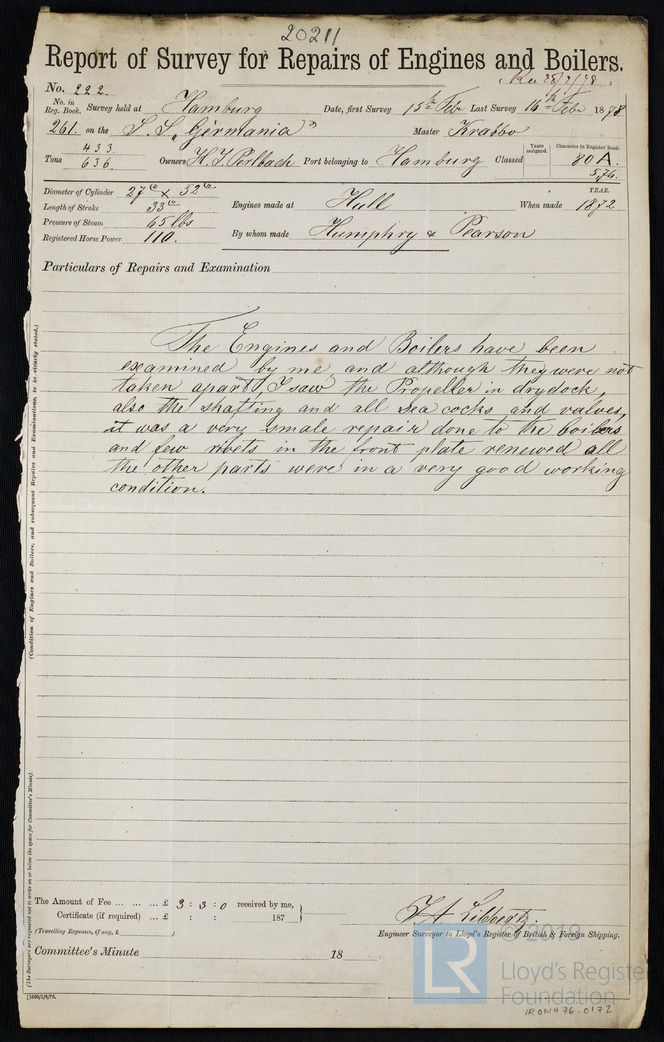 20211
Report of Survey for Repairs of Engines and Boilers.
Rec 28/2/78.
No. 222.
No. in Reg. Book. Survey held at Hamburg Date, first Survey 15th Febr Last Survey 16th Febr 1878
261. on the S. S. "Germania" Master Krabbo
Tons 433 636 Owners H. J. Perlbach Port belonging to Hamburg Classed Years assigned. Character in Register Book. 80 A. 5,76.
Diameter of Cylinder 27" x 52" YEAR.
Length of Stroke 33" Engines made at Hull When made 1872
Pressure of Steam 65 lbs
Registered Horse Power 110. By whom made Humphry & Pearson
Particulars of Repairs and Examination
The Engines and Boilers have been
examined by me, and although they were not
taken apart, I saw the Propeller in drydock,
also the shafting and all sea cocks and valves,
it was a very smale repair done to the boilers
and few ribets in the front plate renewed all
the other parts were in a very good working
condition.
(Condition of Engines and Boilers, and subsequent Repairs and Examinations, to be clearly stated.)
(The Surveyors are requested not to write on or below the space for Committee's Minute).
The Amount of Fee ... ... ... £ 3 : 3 : 0 received by me,
Certificate (if required) ... £ : : 187
(Travelling Expenses, if any, £ )
Engineer Surveyor to Lloyd's Register of British & Foreign Shipping.
Committee's Minute 18
© 2019
LR
Lloyd's Register
Foundation
IRON476-0172